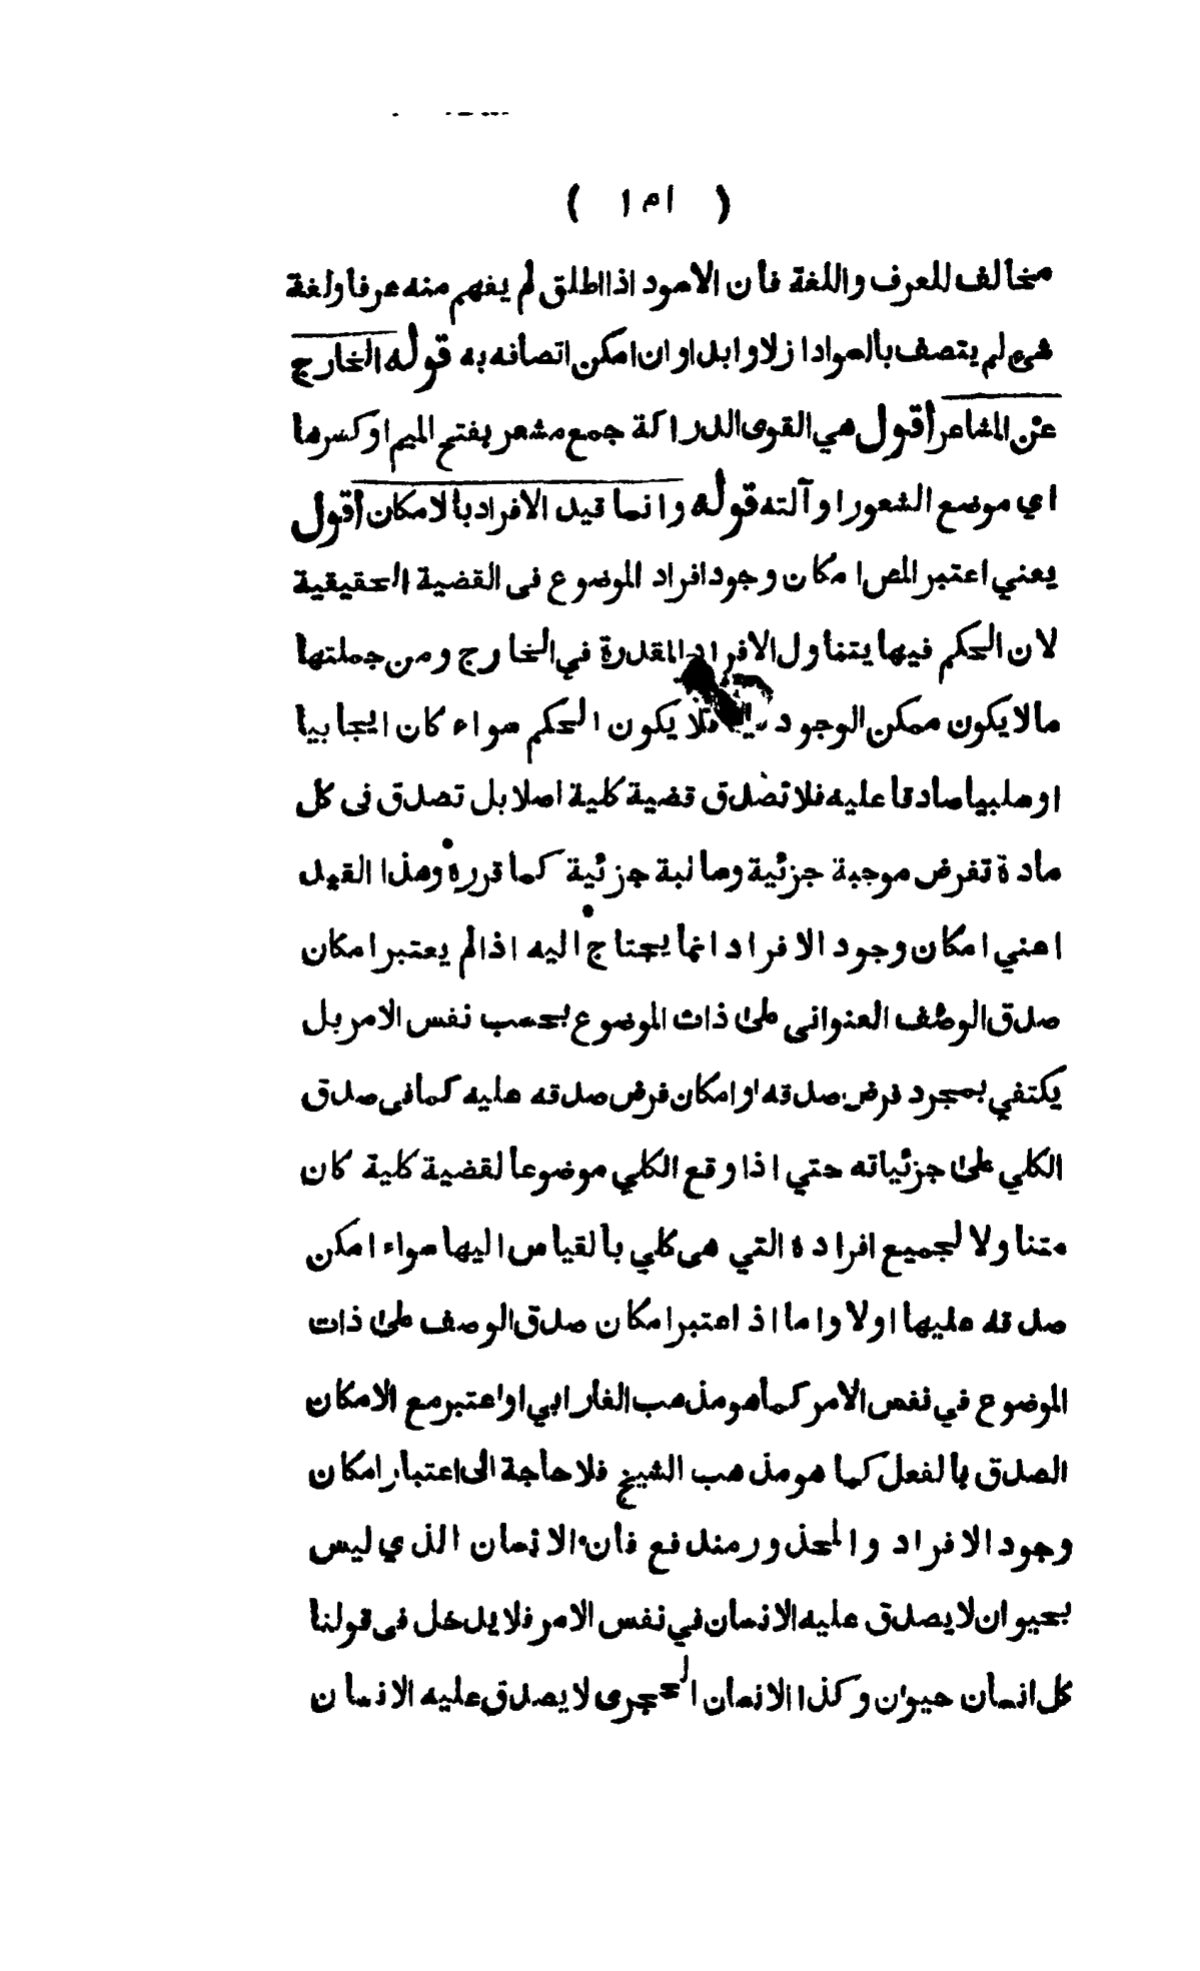 ( ١٥١ )
مخالف للعرف واللغة فان الاسود اذا اطلق لم يفهم منه عرفا ولغة
شيء لم يتصف بالسواد ازلا وابدا وان امكن اتصافه به قوله الخارج
عن المشاعر اقول هي القوى الدراكة جمع مشعر بفتح الميم او كسرها
اي موضع الشعور او آلته قوله وانما قيد الافراد بالامكان اقول
يعني اعتبر المص امكان وجود افراد الموضوع في القضية الحقيقية
لان الحكم فيها يتناول الافراد المقدرة في الخارج ومن جملتها
ما لا يكون ممكن الوجود فلا يكون الحكم سواء كان ايجابيا
او سلبيا صادقا عليه فلا تصدق قضية كلية اصلا بل تصدق في كل
مادة تفرض موجبة جزئية وسالبة جزئية كما قرره وهذا القيد
اعني امكان وجود الافراد انما يحتاج اليه اذا لم يعتبر امكان
صدق الوصف العنواني على ذات الموضوع بحسب نفس الامر بل
يكتفي بمجرد فرض صدقه او امكان فرض صدقه عليه كما في صدق
الكلي على جزئياته حتي اذا وقع الكلي موضوعا لقضية كلية كان
متناولا لجميع افراده التي هي كلي بالقياس اليها سواء امكن
صدقه عليها اولا واما اذ اعتبر امكان صدق الوصف على ذات
الموضوع في نفس الامر كما هو مذهب الفارابي او اعتبر مع الامكان
الصدق بالفعل كما هو مذهب الشيخ فلا حاجة الى اعتبار امكان
وجود الافراد والمحذور مندفع فان الانسان الذي ليس
بحيوان لا يصدق عليه الانسان في نفس الامر فلا يدخل في قولنا
كل انسان حيوان وكذا الانسان الحجرى لا يصدق عليه الانسان